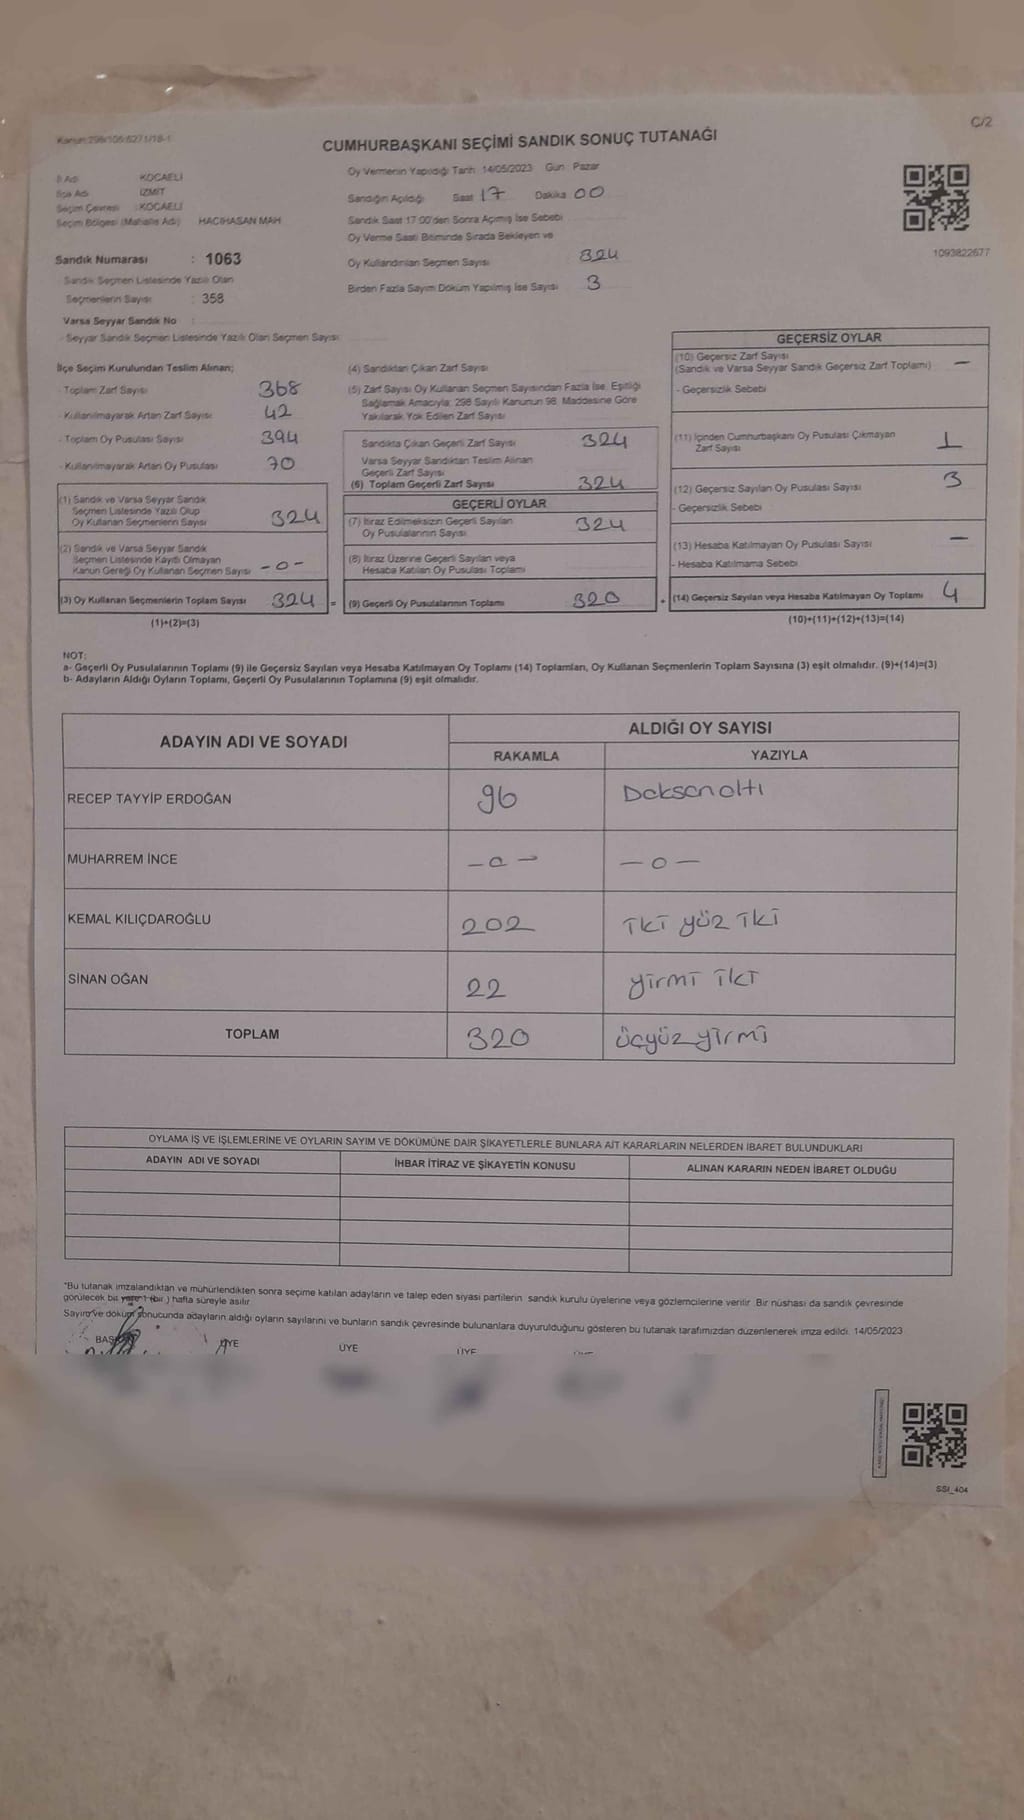 Kanun:298/106;6271/18-1
C/2
CUMHURBAŞKANI SEÇİMİ SANDIK SONUÇ TUTANAĞI
İl Adı KOCAELİ
İlçe Adı İZMİT
Seçim Çevresi : KOCAELİ
Seçim Bölgesi (Mahalle Adı) HACIHASAN MAH
Sandık Numarası : 1063
Sandık Seçmen Listesinde Yazılı Olan
Seçmenlerin Sayısı : 358
Varsa Seyyar Sandık No
Seyyar Sandık Seçmen Listesinde Yazılı Olan Seçmen Sayısı
Oy Vermenin Yapıldığı Tarih 14/05/2023 Gün Pazar
Sandığın Açıldığı Saat 17 Dakika 00
Sandık Saat 17:00'den Sonra Açılmış İse Sebebi
Oy Verme Saati Bitiminde Sırada Bekleyen ve
Oy Kullandırılan Seçmen Sayısı 324
Birden Fazla Sayım Döküm Yapılmış İse Sayısı 3
1093822677
İlçe Seçim Kurulundan Teslim Alınan;
- Toplam Zarf Sayısı 368
- Kullanılmayarak Artan Zarf Sayısı 42
- Toplam Oy Pusulası Sayısı 394
- Kullanılmayarak Artan Oy Pusulası 70
(1) Sandık ve Varsa Seyyar Sandık
Seçmen Listesinde Yazılı Olup
Oy Kullanan Seçmenlerin Sayısı 324
(2) Sandık ve Varsa Seyyar Sandık
Seçmen Listesinde Kayıtlı Olmayan
Kanun Gereği Oy Kullanan Seçmen Sayısı -0-
(3) Oy Kullanan Seçmenlerin Toplam Sayısı 324 =
(1)+(2)=(3)
(4) Sandıktan Çıkan Zarf Sayısı
(5) Zarf Sayısı Oy Kullanan Seçmen Sayısından Fazla İse, Eşitliği
Sağlamak Amacıyla; 298 Sayılı Kanunun 98. Maddesine Göre
Yakılarak Yok Edilen Zarf Sayısı
Sandıkta Çıkan Geçerli Zarf Sayısı 324
Varsa Seyyar Sandıktan Teslim Alınan
Geçerli Zarf Sayısı
(6) Toplam Geçerli Zarf Sayısı 324
GEÇERLİ OYLAR
(7) İtiraz Edilmeksizin Geçerli Sayılan
Oy Pusulalarının Sayısı 324
(8) İtiraz Üzerine Geçerli Sayılan veya
Hesaba Katılan Oy Pusulası Toplamı
(9) Geçerli Oy Pusulalarının Toplamı 320 +
GEÇERSİZ OYLAR
(10) Geçersiz Zarf Sayısı
(Sandık ve Varsa Seyyar Sandık Geçersiz Zarf Toplamı) -
- Geçersizlik Sebebi
(11) İçinden Cumhurbaşkanı Oy Pusulası Çıkmayan
Zarf Sayısı 1
(12) Geçersiz Sayılan Oy Pusulası Sayısı 3
- Geçersizlik Sebebi
(13) Hesaba Katılmayan Oy Pusulası Sayısı -
- Hesaba Katılmama Sebebi
(14) Geçersiz Sayılan veya Hesaba Katılmayan Oy Toplamı 4
(10)+(11)+(12)+(13)=(14)
NOT:
a- Geçerli Oy Pusulalarının Toplamı (9) ile Geçersiz Sayılan veya Hesaba Katılmayan Oy Toplamı (14) Toplamları, Oy Kullanan Seçmenlerin Toplam Sayısına (3) eşit olmalıdır. (9)+(14)=(3)
b- Adayların Aldığı Oyların Toplamı, Geçerli Oy Pusulalarının Toplamına (9) eşit olmalıdır.
ADAYIN ADI VE SOYADI
ALDIĞI OY SAYISI
RAKAMLA YAZIYLA
RECEP TAYYİP ERDOĞAN 96 Doksanaltı
MUHARREM İNCE -0- -0-
KEMAL KILIÇDAROĞLU 202 iki yüz iki
SİNAN OĞAN 22 yirmi iki
TOPLAM 320 üçyüzyirmi
OYLAMA İŞ VE İŞLEMLERİNE VE OYLARIN SAYIM VE DÖKÜMÜNE DAİR ŞİKAYETLERLE BUNLARA AİT KARARLARIN NELERDEN İBARET BULUNDUKLARI
ADAYIN ADI VE SOYADI İHBAR İTİRAZ VE ŞİKAYETİN KONUSU ALINAN KARARIN NEDEN İBARET OLDUĞU
"Bu tutanak imzalandıktan ve mühürlendikten sonra seçime katılan adayların ve talep eden siyasi partilerin sandık kurulu üyelerine veya gözlemcilerine verilir. Bir nüshası da sandık çevresinde
görülecek bir yere 1 (bir ) hafta süreyle asılır.
Sayım ve döküm sonucunda adayların aldığı oyların sayılarını ve bunların sandık çevresinde bulunanlara duyurulduğunu gösteren bu tutanak tarafımızdan düzenlenerek imza edildi. 14/05/2023
ÜYE ÜYE ÜYE
SSI_404